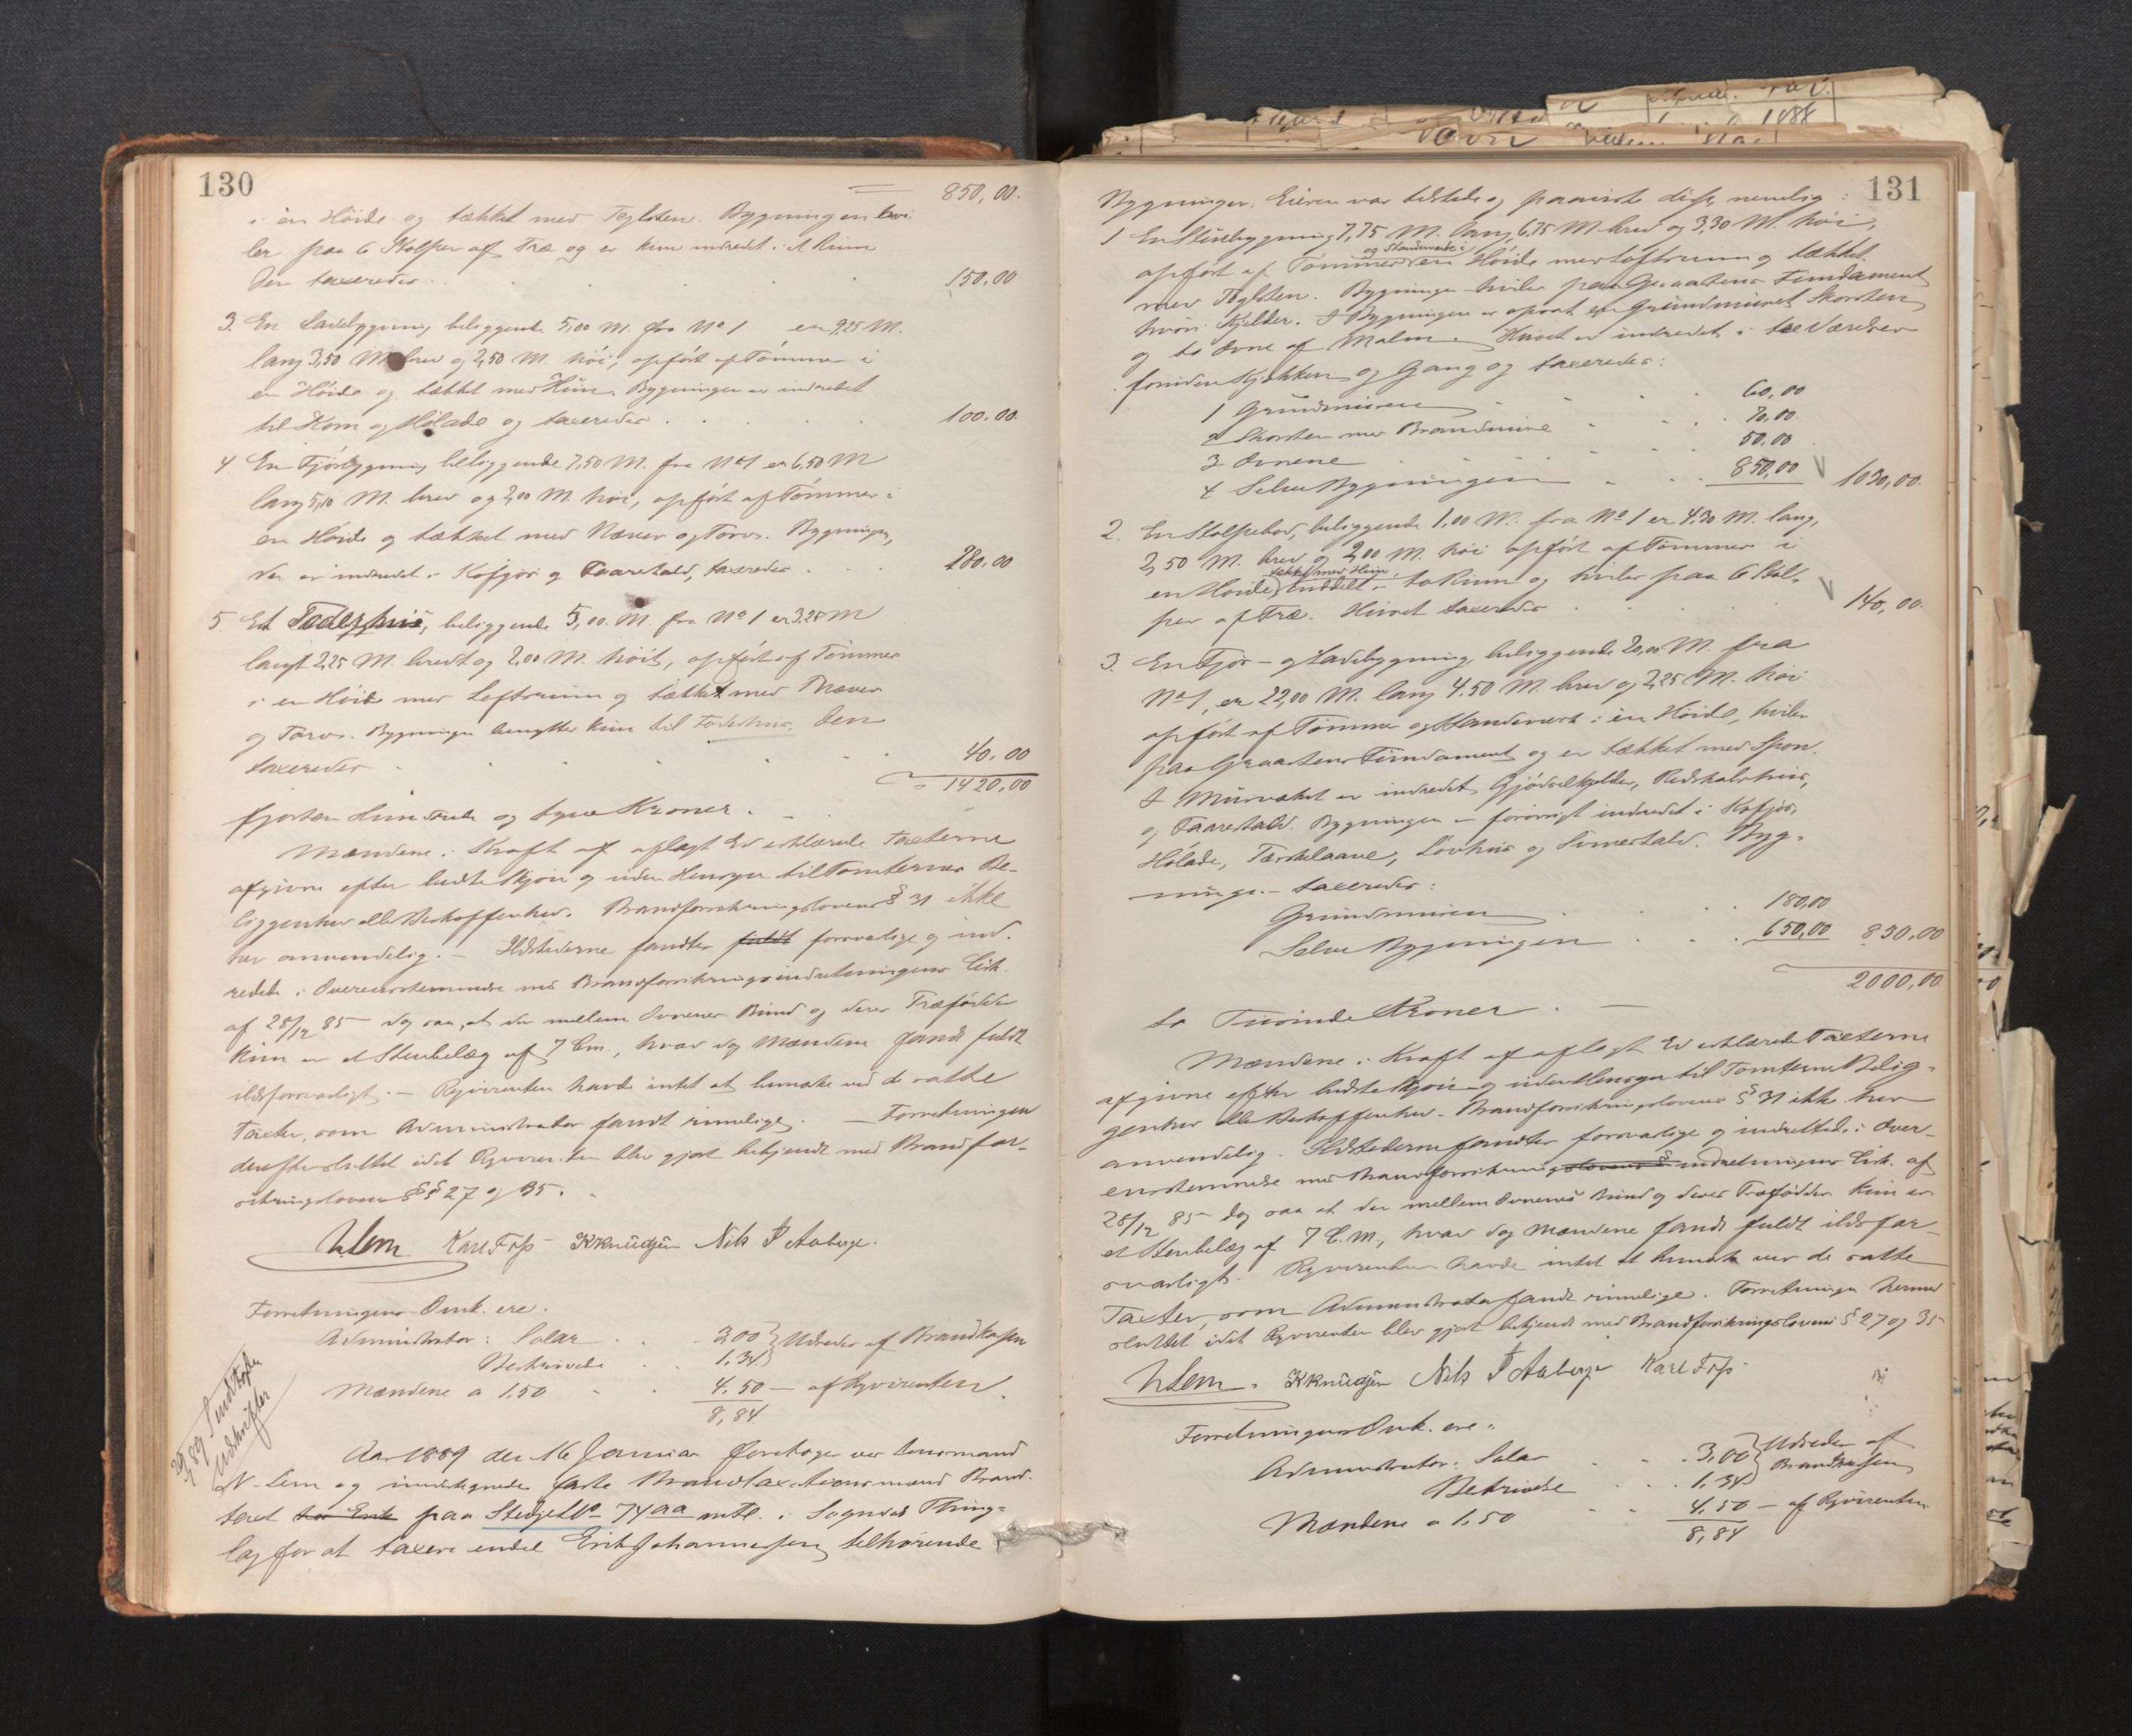 130
850,00.
i én Höide og tækket med Teglsten. Bygningen hvi-
ler paa 6 Stolper af Træ og er kun indredet i et Rum
Den taxeredes . . . . 150.00
3. En Ladebygning beliggende 5,00 M. fra No 1 er 9,25 M.
lang 3,50 M. bred og 2,50 M. höi, opfört af Tömmer i
en Höide og tækket med Hun. Bygningen er indredet
til Korn og Hölade og taxeredes . . . 100.00.
4. En Fjösbygning beliggende 7,50 M. fra No 1 er 6,50 M
lang 5,10 M. bred og 2,00 M. höi, opfört af Tömmer i
en Höide og tækket med Næver og Torv. Bygningen,
der er indredet i Kofjös og Faarestald, taxeredes . . 280.00
5. Et Foderhus, beliggende 5,00. M. fra No 1 er 3.25 M
langt 2,25 M. bredt og 2,00 M. höit, opfört af Tömmer
i en Höide med Loftsrum og tækket med Næver
og Torv. Bygningen benyttes kun til Foderhus. Den
taxeredes . . . . 40.00
1420,00
fjorten Hundrede og tyve Kroner.
Mændene i Kraft af aflagt Ed erklærede Taxterne
afgivne efter bedste Skjön og uden Hensyn til Tomternes Be-
liggenhed eller Beskaffenhed. Brandforsikringslovens § 31 ikke
her anvendelig. — Ildstederne fandtes fuldt forsvarlige og ind-
redede i Overensstemmelse med Brandforsikringsindretningens Cirk.
af 28/12 85 dog saa, at der mellem Ovnenes Bund og deres Træfödder
kun er et Stenbelæg af 7 Cm., hvad dog Mændene fandt fuldt
ildsforsvarligt. — Rqvirenten havde intet at bemærke ved de satte
Taxter, som Administrator fandt rimelige. — Forretningen
derefter sluttet idet Rqvirenten blev gjort bekjendt med Brandfor-
sikringslovens §§ 27 og 35.
N Lem Karl Foss K Knudsen Nils P Aaberge.
Forretningens Omk. ere.
Administrator: Salar . . 3,00 } Udredes af Brandkassen
Beskrivelse . . 1,34 }
Mændene a 1,50 . . 4,50 — af Rqvirenten.
8,84.
89 Sendt
Udskrifter
Aar 1889 den 16 Januar foretoges ved Lensmand
N. Lem og undertegnede faste Brandtaxationsmænd Brand-
taxt hos Erik paa Stedje Lo 74 aa mtl. i Sogndals Thing-
lag for at taxere endel Erik Johannessen tilhørende
131
Bygninger. Eieren var tilstede og paaviste disse, nemlig:
1 En Stuebygning 7,75 M. lang 6,75 M bred og 3,30 M. höi,
og Standværk i
opfört af Tömmer en Höide med Loftsrum og tækket
med Teglsten. Bygningen hviler paa Graastens Fundament
hvori Kjelder. I Bygningen er opsat en grundmuret Skorsten
og to Ovne af Malm. Huset er indredet i tre Værelser
foruden Kjökken og Gang og taxeredes:
1 Grundmuren . . . 60,00
2 Skorsten med Brandmure . . . 70,00.
3 Ovnene . . . 50,00
4 Selve Bygningen . . . 850,00 1030,00.
2. En Stolpebod, beliggende 1,00 M. fra No 1 er 4,30 M. lang,
3,50 M. bred og 2,00 M. höi opfört af Tömmer i
tækket med Hun
en Höide, inddelt i to Rum og hviler paa 6 Stol-
per af Træ. Huset taxeredes . . . 140,00.
3. En Fjös- og Ladebygning, beliggende 20,00 M. fra
No 1, er 22,00 M. lang 4.50 M. bred og 2,25 M. höi
opfört af Tömmer og Standværk i én Höide, hviler
paa Graastens Fundament og er tækket med Spon.
I Murværket er indredet Gjödselkjelder, Redskabshus,
og Faarestald. Bygningen er forövrigt indredet i Kofjös,
Hölade, Tærskelaave, Lövhus og Svinestald. Byg-
ningen taxeredes:
Grundmuren . . . 180,00
Selve Bygningen . . . 650,00 830,00
2000,00
to Tusinde Kroner. —
Mændene i Kraft af aflagt Ed erklærede Taxterne
afgivne efter bedste Skjön og uden Hensyn til Tomternes Belig-
genhed eller Beskaffenhed. Brandforsikringslovens § 31 ikke her
anvendelig. Ildstederne fandtes forsvarlige og indrettede i Over-
ensstemmelse med Brandforsikringslovens § indretningens Cirk. af
28/12 85 dog saa at der mellem Ovnenes Bund og deres Træfödder kun er
et Stenbelæg af 7 C.M., hvad dog Mændene fandt fuldt ildsfor-
svarligt. Rqvirenten havde intet at bemærke ved de satte
Taxter, som Administrator fandt rimelige. Forretningen hermed
sluttet idet Rqvirenten blev gjort bekjendt med Brandforsikringslovens § 27 og 35
N Lem. K Knudsen Nils P Aaberge Karl Foss
Forretningens Omk. ere.
Administrator: Salar . . . 3,00 } Udredes af
Beskrivelse . . . 1,34 } Brandkassen
Mændene a 1,50 . . . 4,50 — af Rqvirenten
8,84